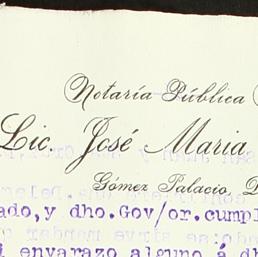 Notaría Pública
Lic. José Maria
Gómez Palacio, D
ado,y dho.Gov/or.cumpl
i envarazo alguno á dh